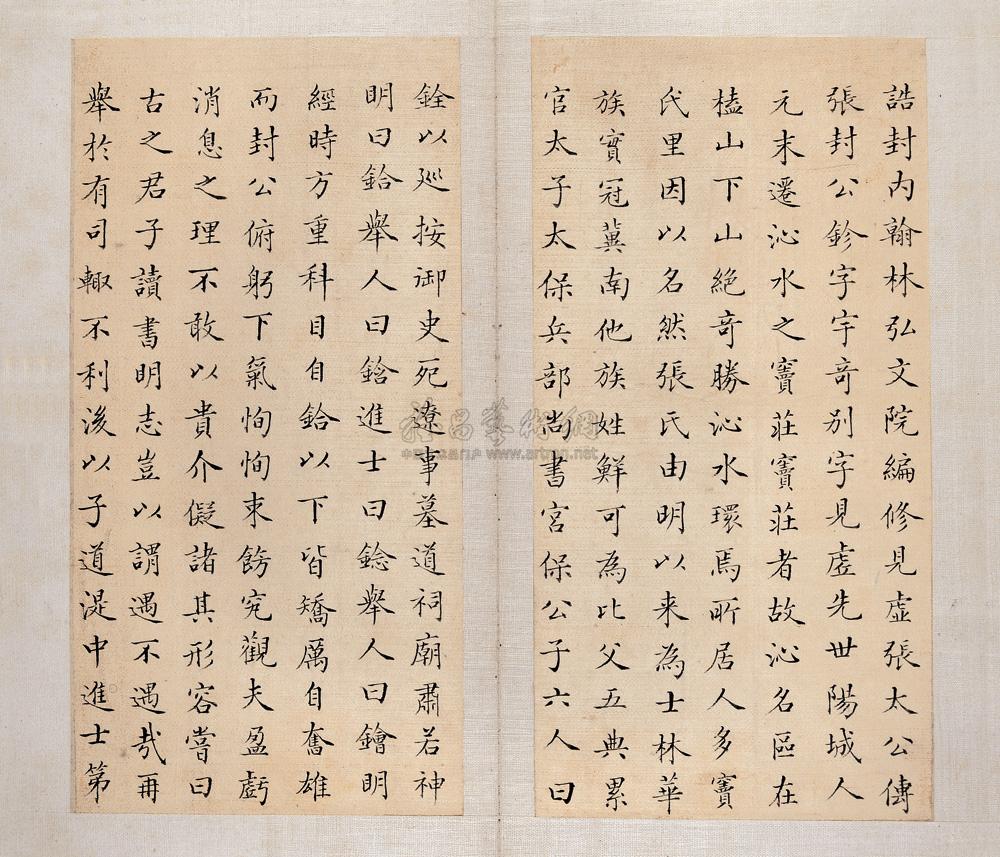 誥封內翰林弘文院編修見虛張太公傳
張封公鉁字宇奇別字見虛先世陽城人
元末遷沁水之竇莊竇莊者故沁名區在
榼山下山絕奇勝沁水環焉所居人多竇
氏里因以名然張氏由明以来為士林華
族實冠冀南他族姓鮮可為比父五典累
官太子太保兵部尚書宮保公子六人曰
銓以廵按御史死遼事墓道祠廟肅若神
明曰鉿舉人曰鋡進士曰鋑舉人曰鐕明
經時方重科目自鉿以下皆矯厲自奮雄
而封公俯躬下氣恂恂朿飭究觀夫盈虧
消息之理不敢以貴介儗諸其形容嘗曰
古之君子讀書明志豈以謂遇不遇㢤再
舉於有司輙不利後以子道湜中進士第
www.artron.net